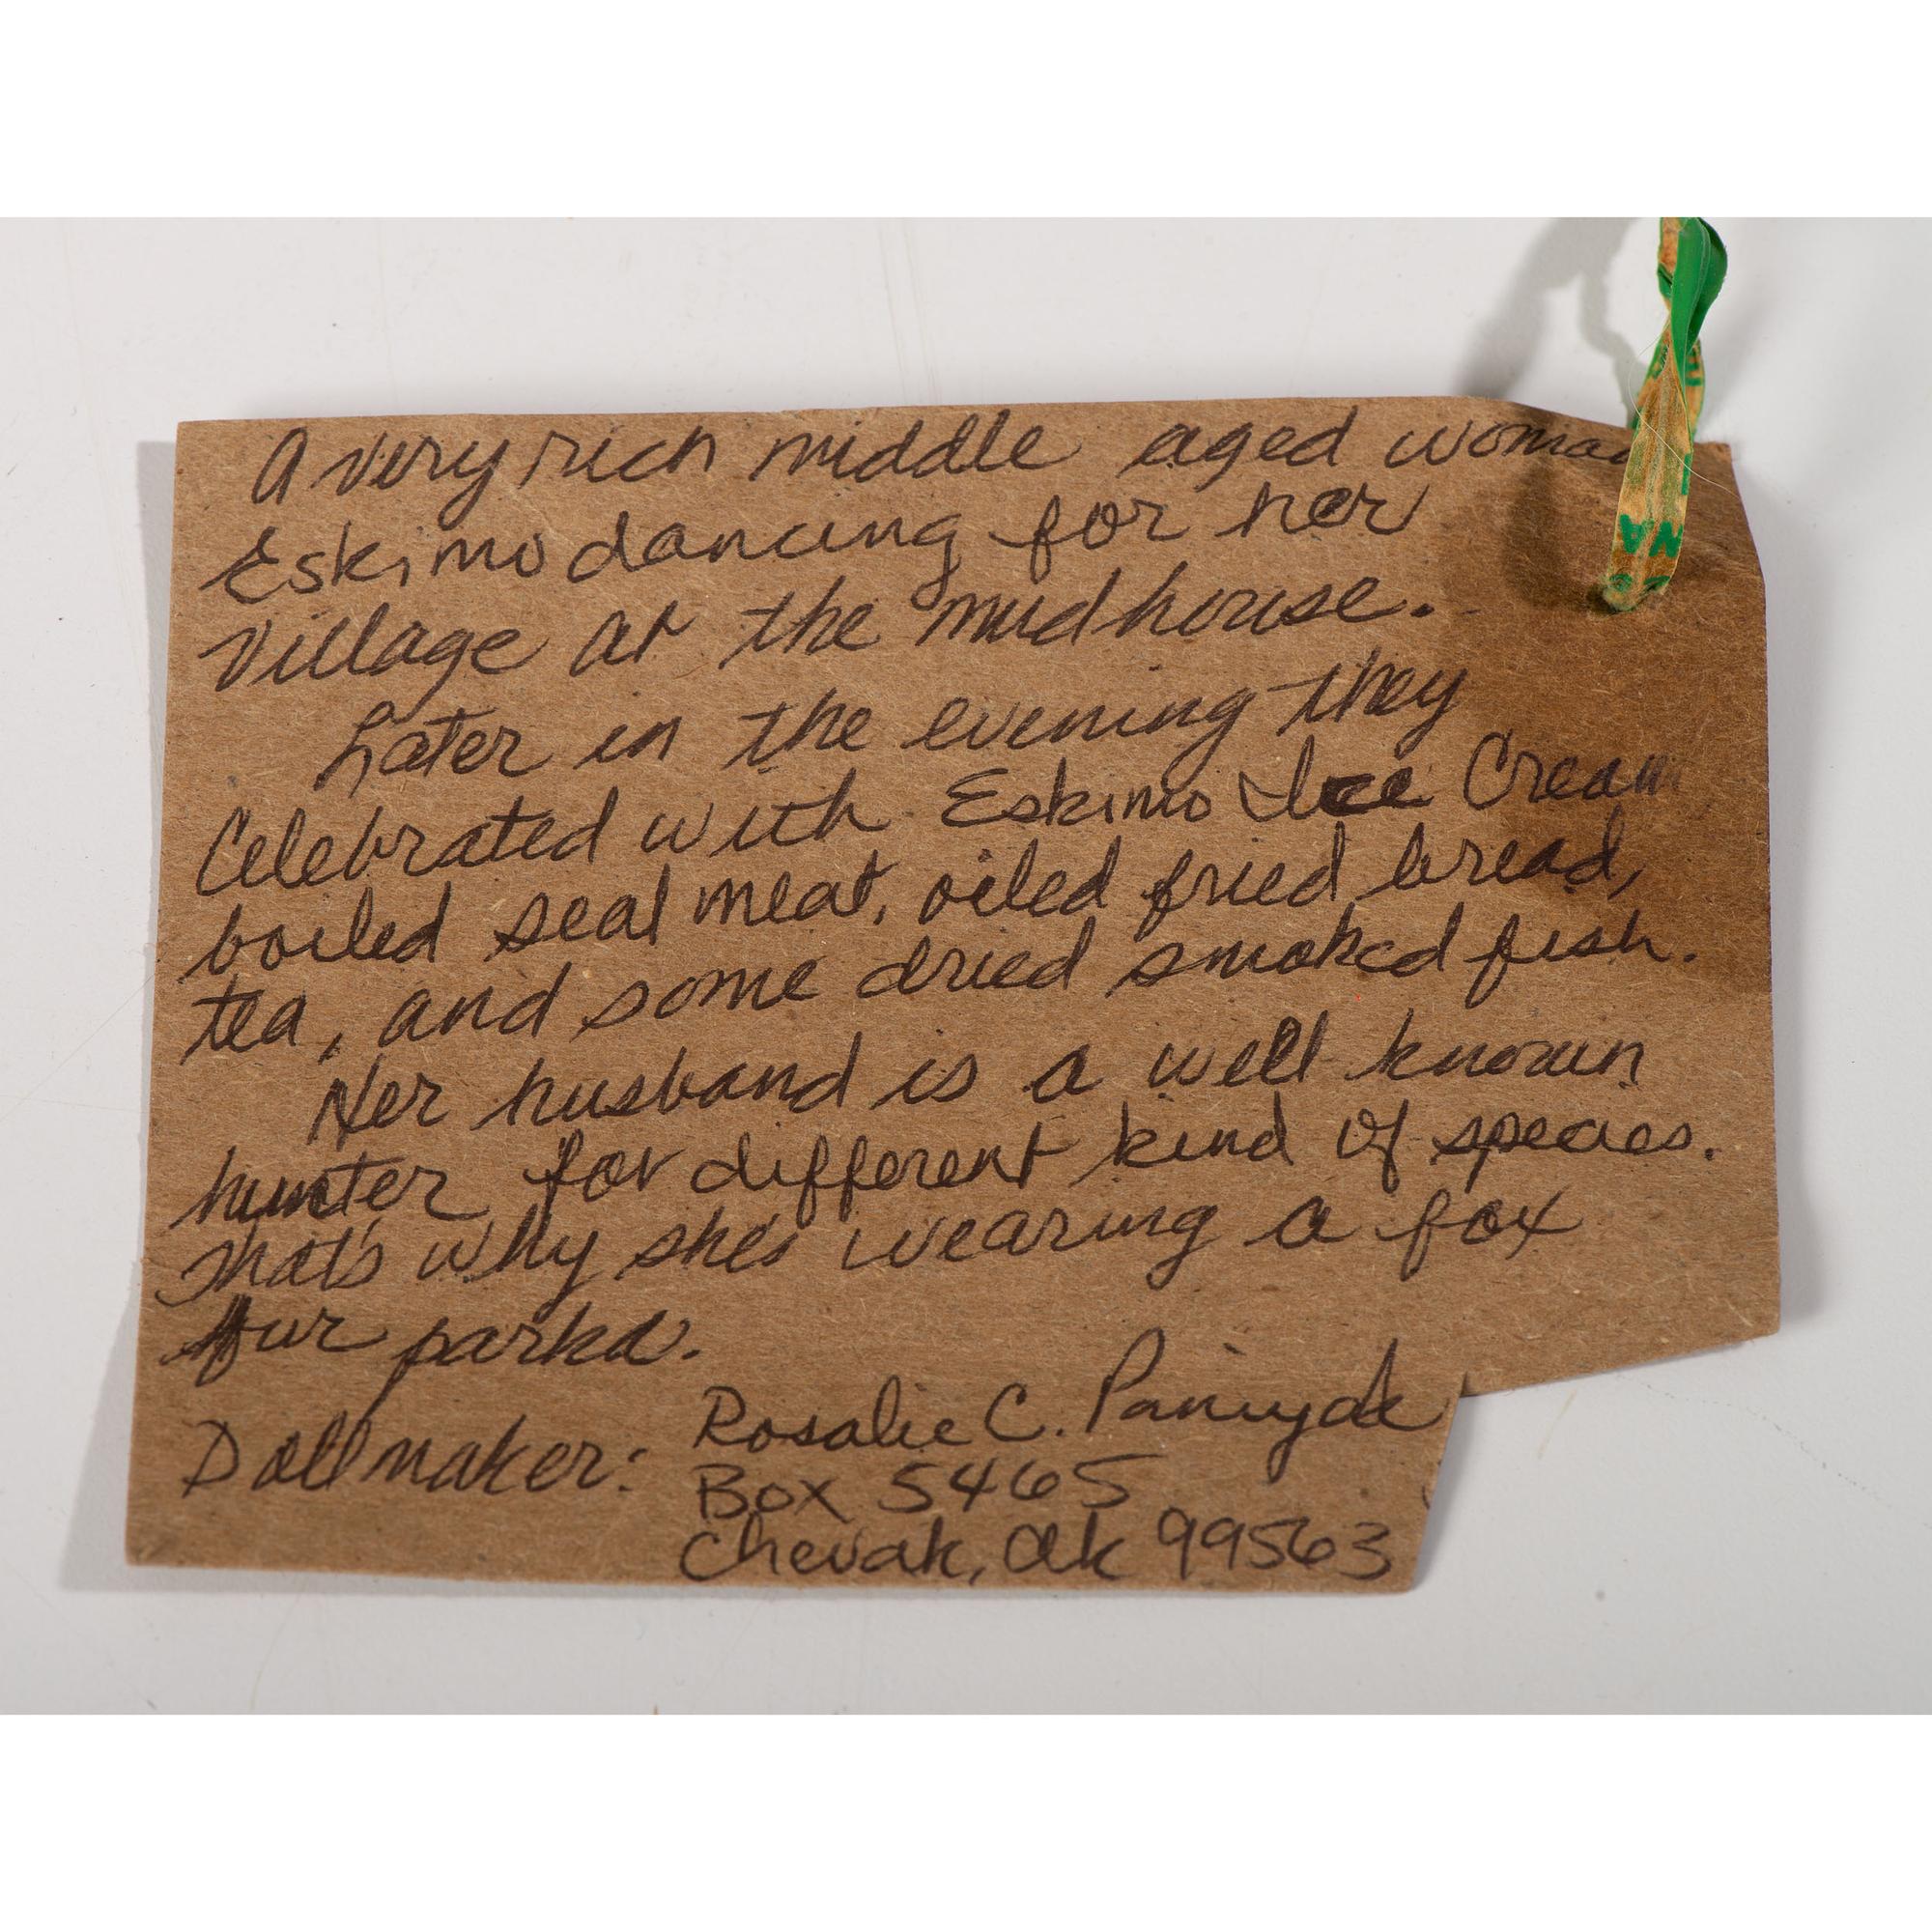 A very rich middle aged woman
Eskimo dancing for her
Village at the mudhouse.
Later in the evening they
Celebrated with Eskimo Ice Cream,
boiled seal meat, oiled fried bread,
tea, and some dried smoked fish.
Her husband is a well known
hunter for different kind of species.
That's why she's wearing a fox
fur parka.
Dollmaker: Rosalie C. Paniyak
Box 5465
Chevak, Ak 99563